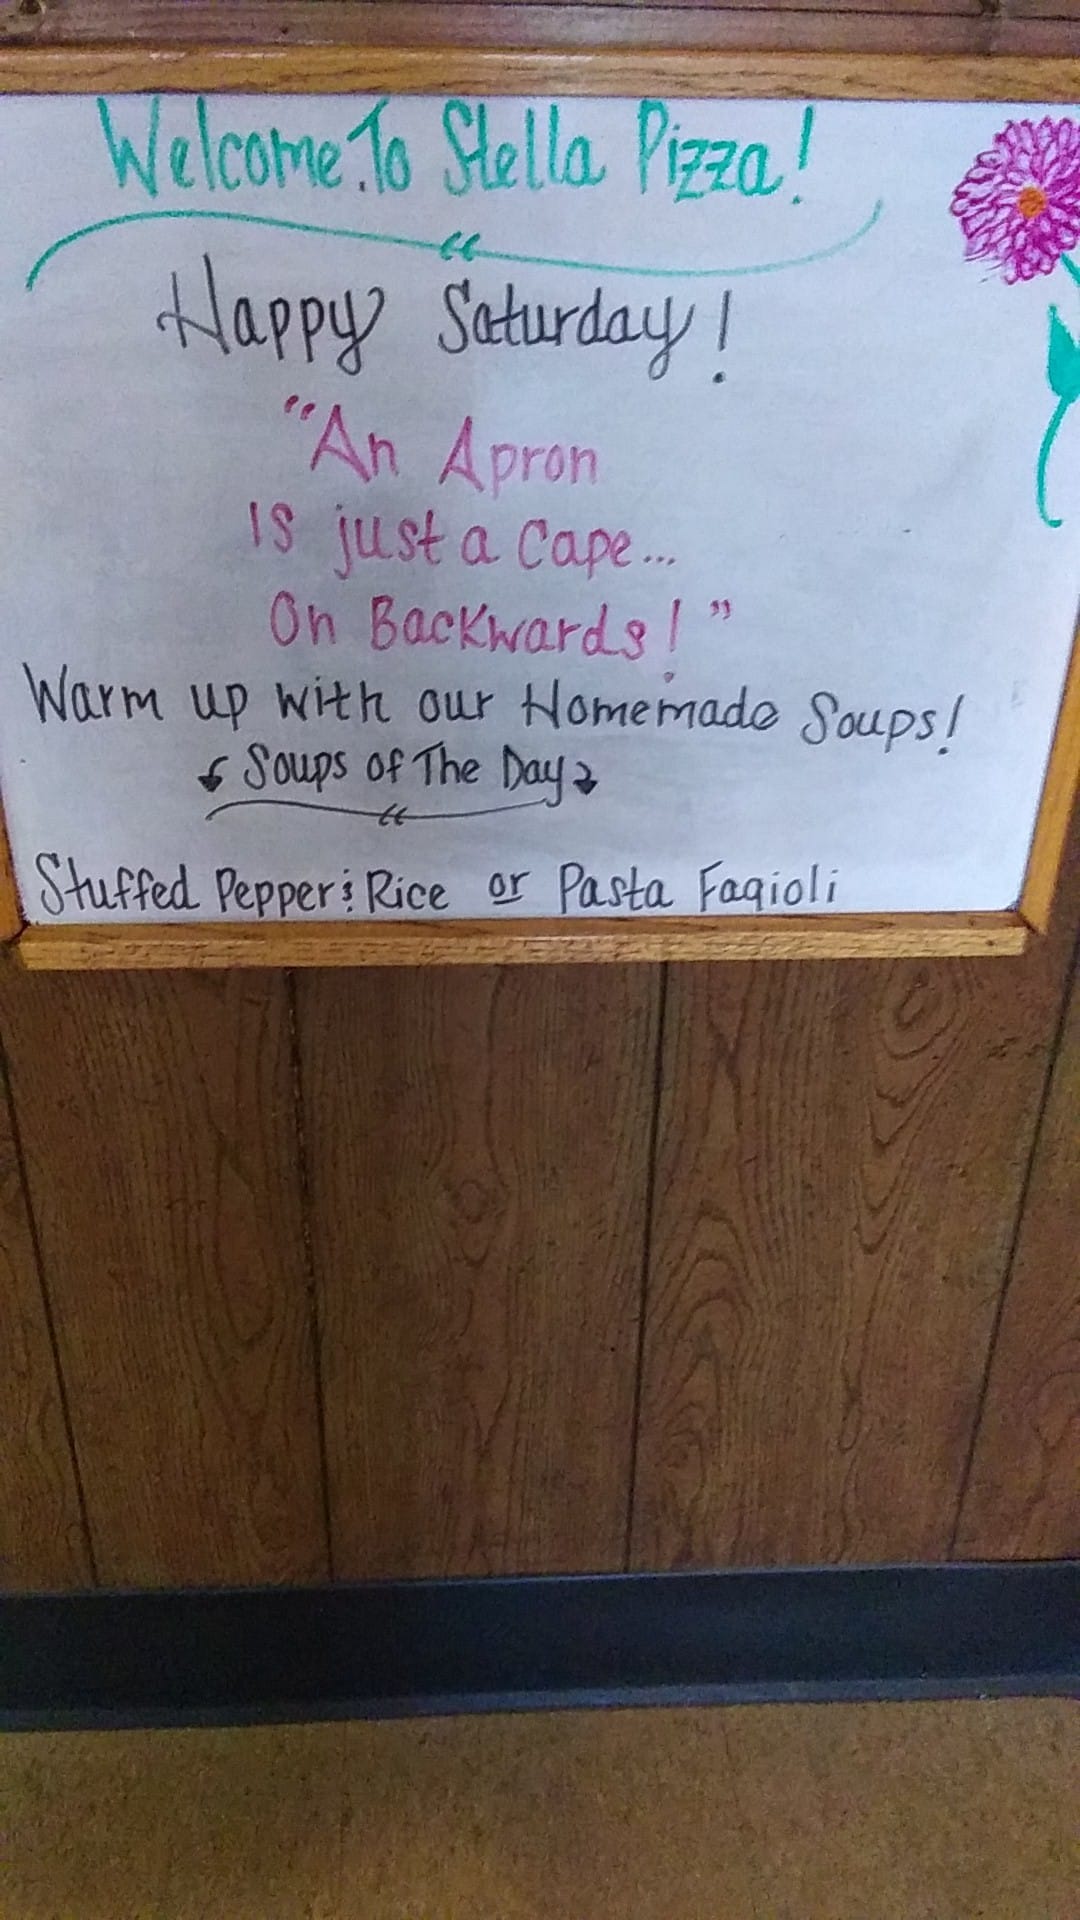 Welcome To Stella Pizza!
Happy Saturday!
"An Apron
Is just a Cape...
On Backwards!"
Warm up with our Homemade Soups!
Soups of The Day
Stuffed Pepper & Rice or Pasta Fagioli